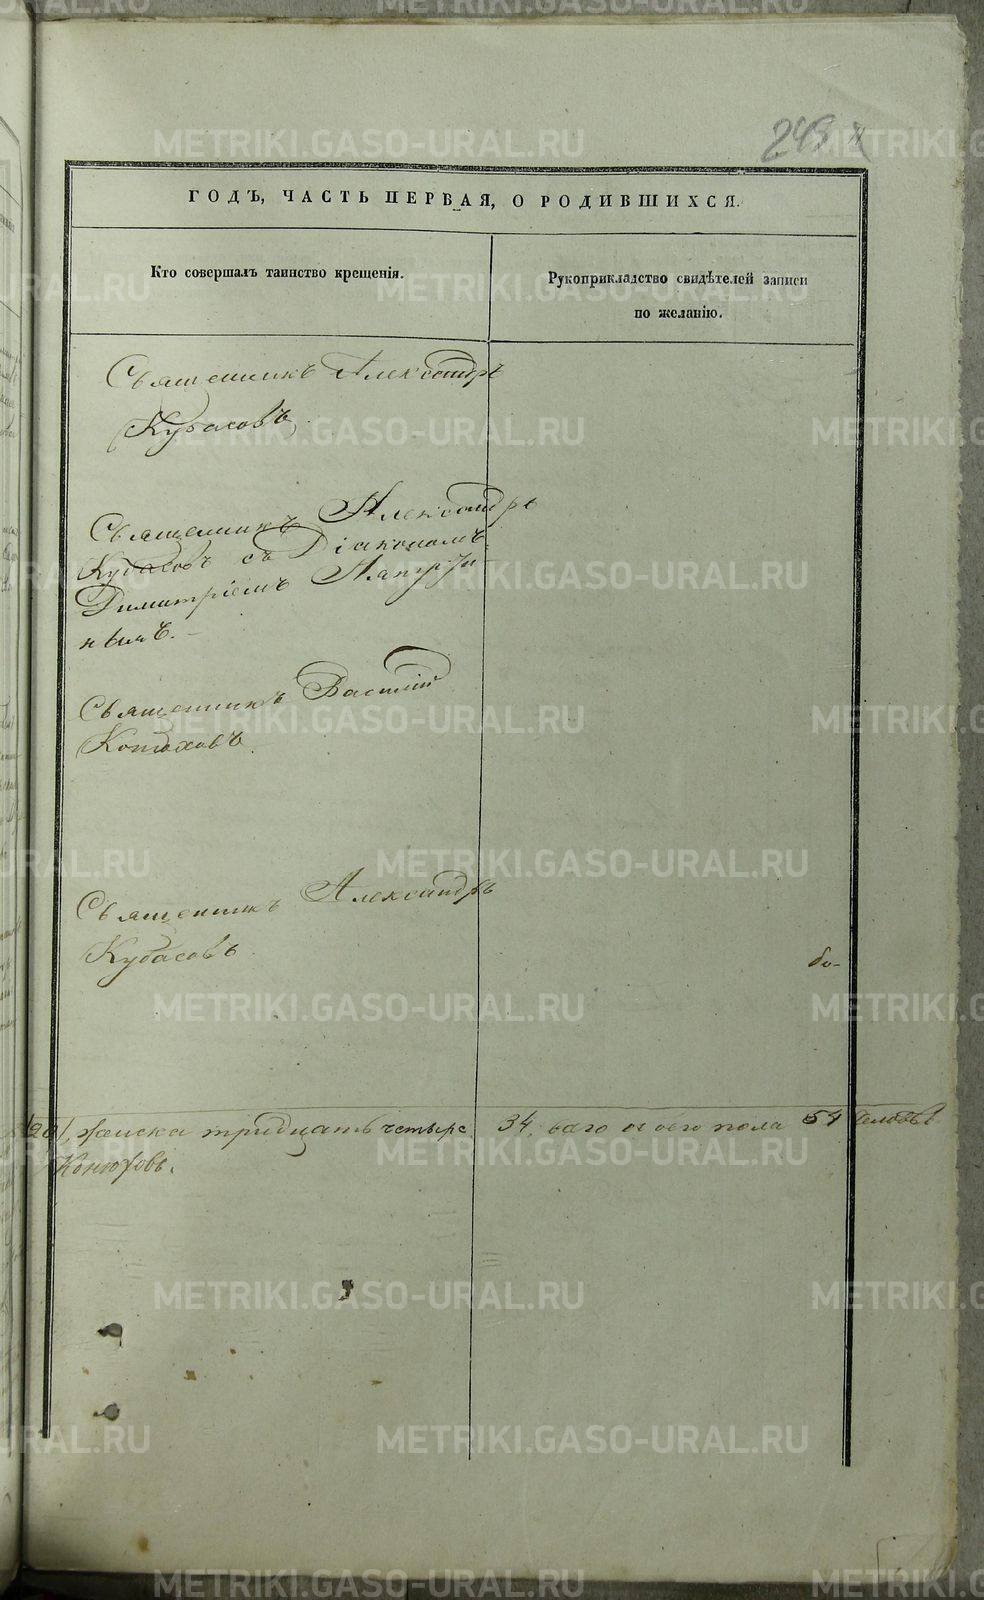 249
ГОДЪ, ЧАСТЬ ПЕРВАЯ, О РОДИВШИХСЯ.
Кто совершалъ таинство крещенія.
Рукоприкладство свидѣтелей записи
по желанію.
Священникъ Александръ
Кубасовъ.
Священникъ Александръ
Кубасовъ съ Діакономъ
Димитріемъ
нымъ.
Священникъ Василій
Конюховъ.
Священникъ Александръ
Кубасовъ.
бо-
/20/, женска тридцать четыре 34, обоего пола 54 человѣ
Конюховъ.
METRIKI.GASO-URAL.RU